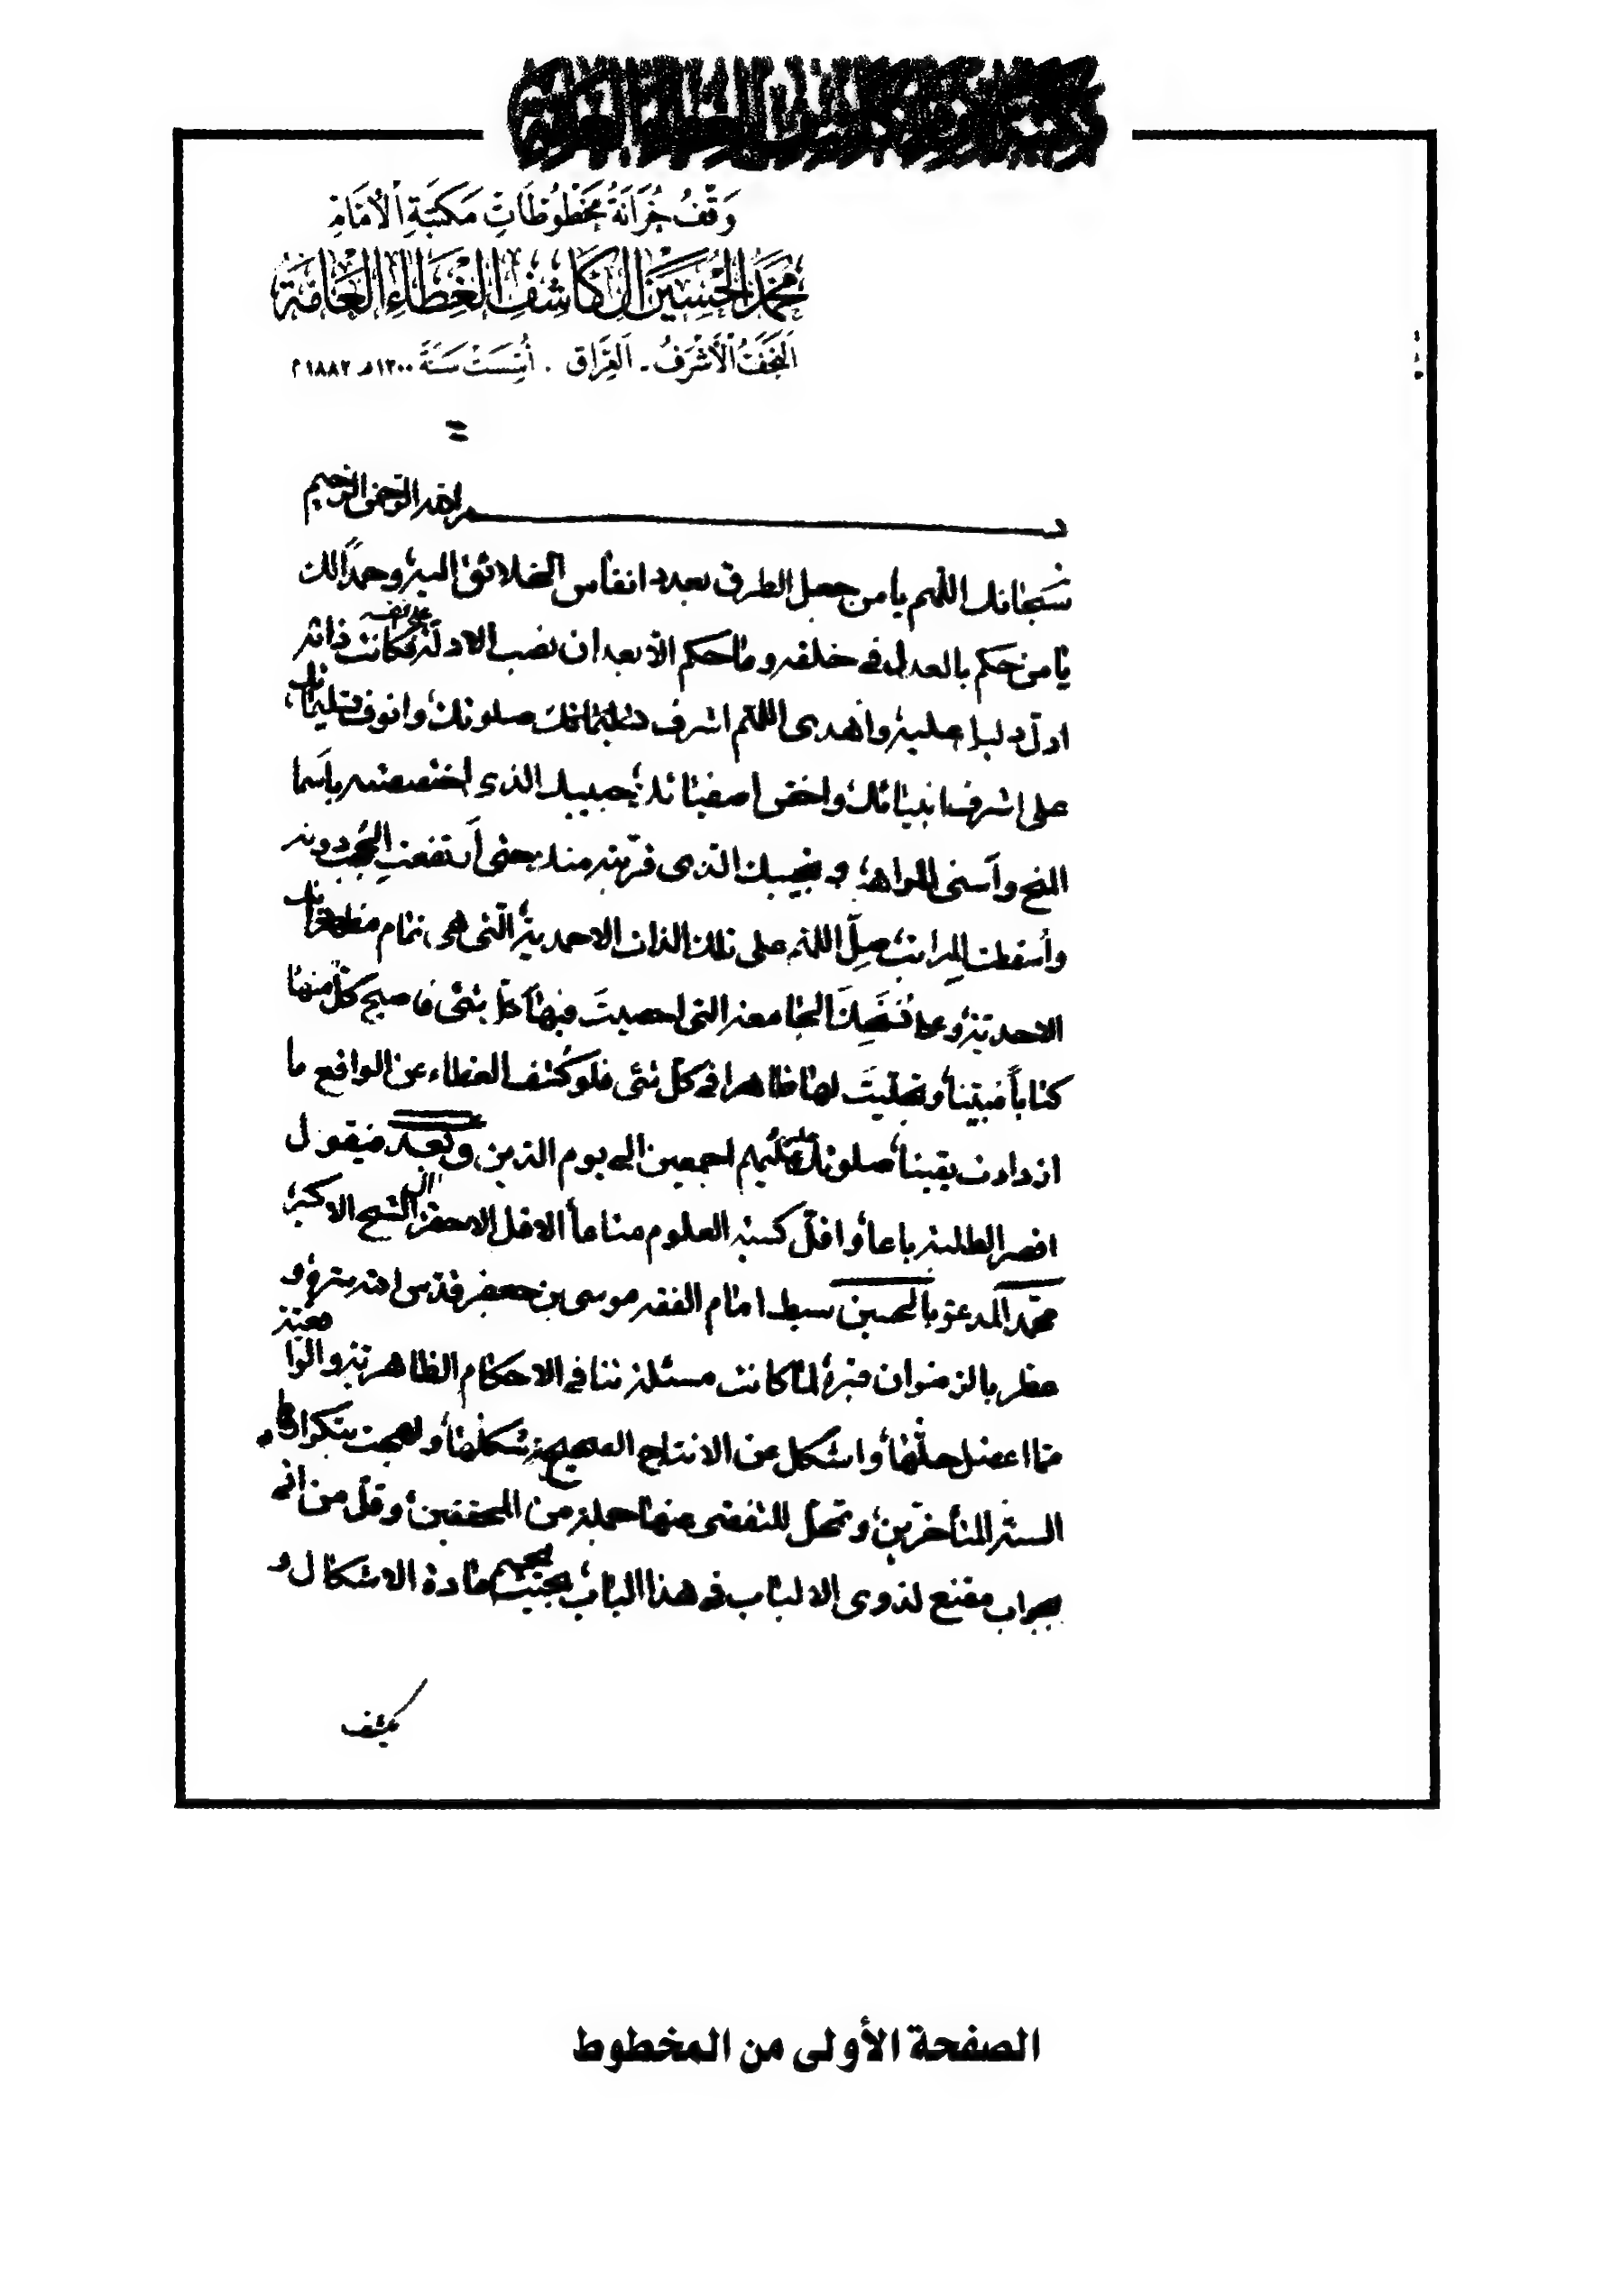 وَقْفُ خِزَانَةِ مَخْطُوطَاتِ مَكْتَبَةِ الْإِمَامِ
مُحَمَّد الحُسَيْن آل كَاشِفِ الْغِطَاءِ الْعَامَّة
النَّجَفُ الْأَشْرَفُ - الْعِرَاق . أُسِّسَتْ سَنَةَ ١٣٠٠هـ ١٨٨٢م
بسم الله الرحمن الرحيم
سبحانك اللهم يا من جعل الطرق بعدد انفاس الخلائق اليه وحمداً لك
يا من حكم بالعدل في خلقه وما حكم الّا بعد ان نصب الادلة فكانت ذاته
ادلّ دليل عليه واهدى اللهم اشرف صلوتك وانوف
على اشرف انبيائك واخص اصفيائك حبيبك الذي اختصصته باسما
المنح وأسنى المواهب ونجيبك الذي قرّبته منك حتى ارتفعت الحجب دونه
وأسقطت المراتب صلّ اللهم على تلك الذات الاحمدية التي هي تمام
الاحدية وعلى الجامعة التي احصيت فيها كلّ شئ فاصبح كلّ منها
كتاباً مبيناً وتجليت لها ظاهرا في كلّ شئ فلو كشف الغطاء عن الواقع ما
ازدادت يقينا صلوتك عليهم اجمعين الى يوم الدين وبعد فيقول
اقصر الطلبة باعاً واقلّ كسبة العلوم متاعاً الاقل الاحقر آل الشيخ الاكبر
محمد المدعو بالحسين سبط امام الفقه موسى بن جعفر قدّس الله سرّه و
عطر بالرضوان قبره لما كانت مسئلة تنافي الاحكام الظاهرية والواقعية
مما اعضل حلّها واشكل عن الانتاج الصحيح شكلها ولهجت بذكرها
السنة المتأخرين وتمحّل للتفصي عنها جملة من المحققين وقلّ من اتى
بجواب مقنع لذوي الالباب في هذا الباب بحيث مادة الاشكال و
الصفحة الأولى من المخطوط